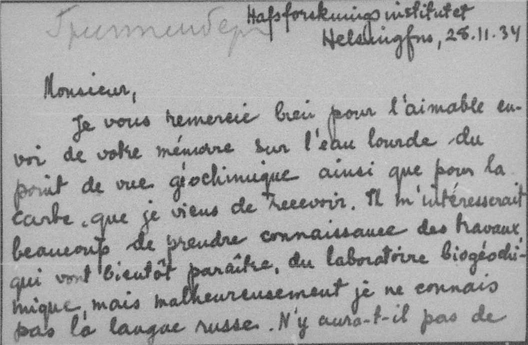 Гриппенберг
Hafsforskningsinstitutet
Helsingfors, 28.11.34
Monsieur,
Je vous remercie bien pour l'aimable en-
voi de votre mémoire sur l'eau lourde du
point de vue géochimique ainsi que pour la
carte, que je viens de recevoir. Il m'intéresserait
beaucoup de prendre connaissance des travaux,
qui vont bientôt paraître, du laboratoire biogéochi-
mique, mais malheureusement je ne connais
pas la langue russe. N'y aura-t-il pas de